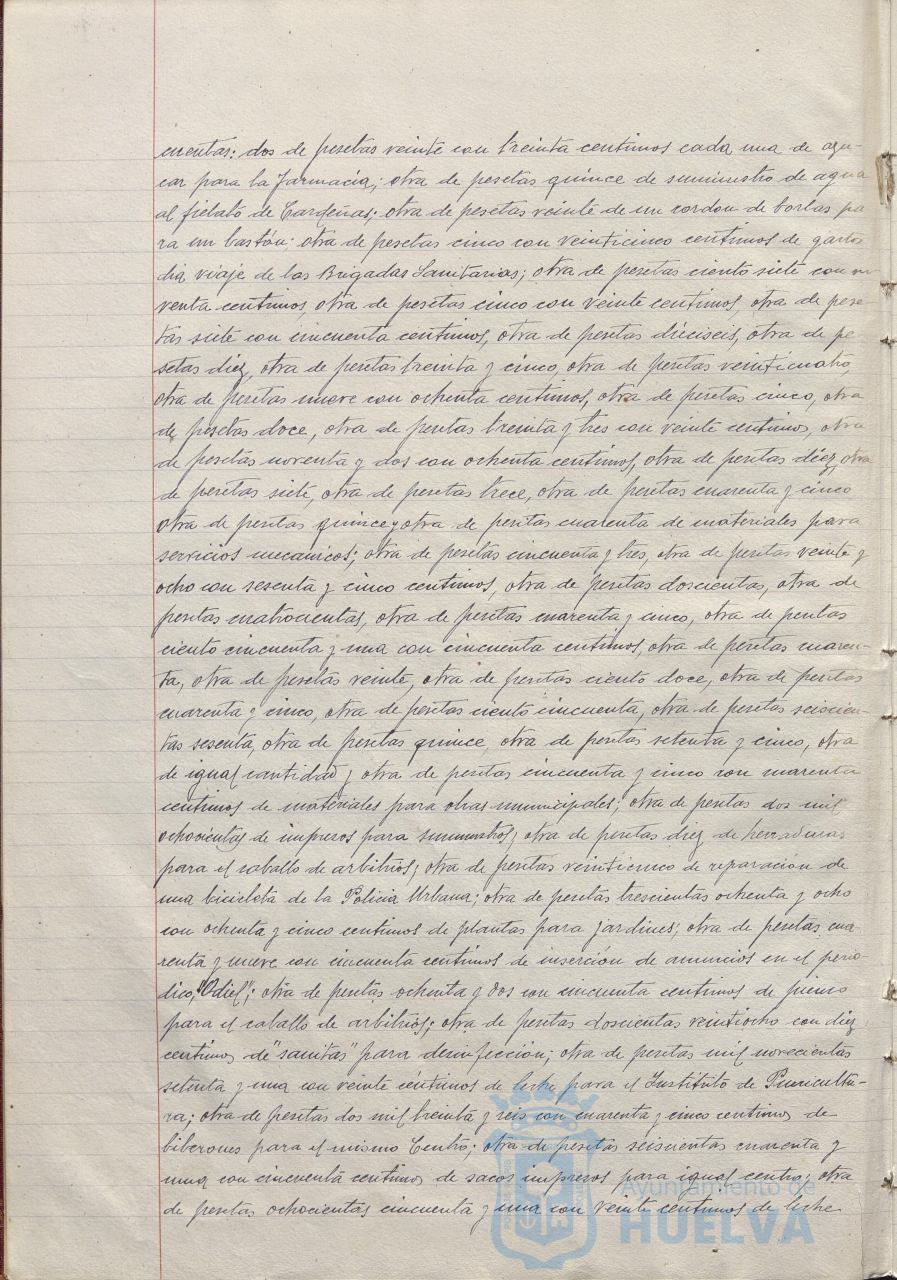 cuentas: dos de pesetas veinte con treinta centimos cada una de azu-
car para la Farmacia; otra de pesetas quince de suministro de agua
al fielato de Cardeñas; otra de pesetas veinte de un cordon de borlas pa
ra un bastón: otra de pesetas cinco con veinticinco centimos de gastos
dia viaje de las Brigadas Sanitarias; otra de pesetas ciento siete con no
venta centimos, otra de pesetas cinco con veinte centimos, otra de pese-
tas siete con cincuenta centimos, otra de pesetas dieciseis, otra de pe
setas diez, otra de pesetas treinta y cinco, otra de pesetas veinticuatro,
otra de pesetas nueve con ochenta centimos, otra de pesetas cinco, otra
de pesetas doce, otra de pesetas treinta y tres con veinte centimos, otra
de pesetas noventa y dos con ochenta centimos, otra de pesetas diez, otra
de pesetas siete, otra de pesetas trece, otra de pesetas cuarenta y cinco
otra de pesetas quince y otra de pesetas cuarenta de materiales para
servicios mecanicos; otra de pesetas cincuenta y tres, otra de pesetas veinte y
ocho con sesenta y cinco centimos, otra de pesetas doscientas, otra de
pesetas cuatrocientas, otra de pesetas cuarenta y cinco, otra de pesetas
ciento cincuenta y una con cincuenta centimos, otra de pesetas cuaren-
ta, otra de pesetas veinte, otra de pesetas ciento doce, otra de pesetas
cuarenta y cinco, otra de pesetas ciento cincuenta, otra de pesetas seiscien-
tas sesenta, otra de pesetas quince, otra de pesetas setenta y cinco, otra
de igual cantidad y otra de pesetas cincuenta y cinco con cuarenta
centimos de materiales para obras municipales; otra de pesetas dos mil
ochocientas de impresos para suministros; otra de pesetas diez de herraduras
para el caballo de arbitrios; otra de pesetas veinticinco de reparación de
una bicicleta de la Policia Urbana; otra de pesetas trescientas ochenta y ocho
con ochenta y cinco centimos de plantas para jardines; otra de pesetas cua-
renta y nueve con cincuenta centimos de inserción de anuncios en el perio-
dico "Odiel"; otra de pesetas ochenta y dos con cincuenta centimos de pienso
para el caballo de arbitrios; otra de pesetas doscientas veintiocho con diez
centimos de "sanitas" para desinfección; otra de pesetas mil novecientas
setenta y una con veinte centimos de leche para el Instituto de Puericultu-
ra; otra de pesetas dos mil treinta y seis con cuarenta y cinco centimos de
biberones para el mismo Centro; otra de pesetas seiscientas cuarenta y
una con cincuenta centimos de sacos impresos para igual centro; otra
de pesetas ochocientas cincuenta y una con veinte centimos de leche
Ayuntamiento de
HUELVA